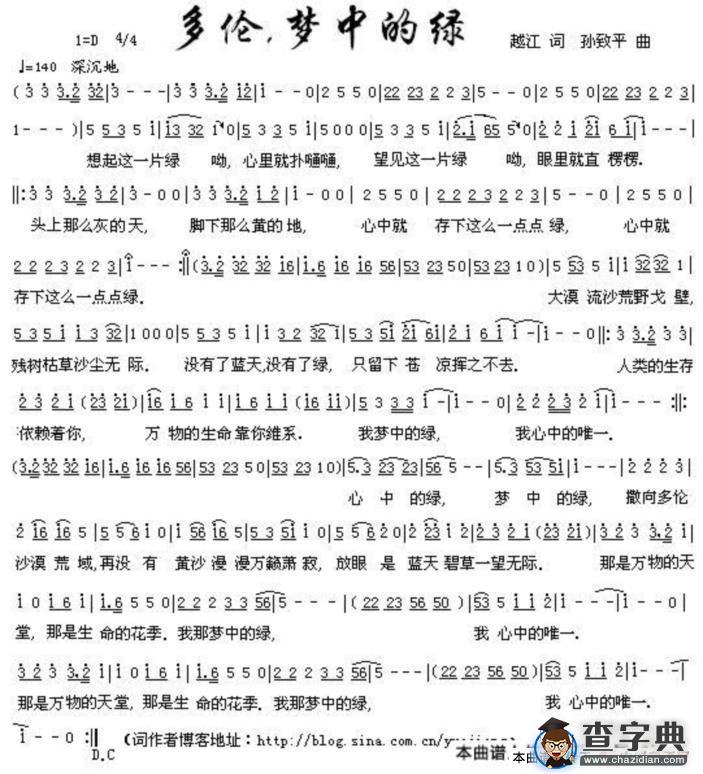 多伦,梦中的绿
1=D 4/4
越江 词 孙致平 曲
♩=140 深沉地
(3 3 3.2 32|3---|3 3 3.2 12|1--0|2 5 5 0|22 23 2 2 3|5--0|2 5 5 0|22 23 2 2 3|
1---)|5 5 3 5 1|13 32 1 0|5 3 3 5 1|5 0 0 0|5 3 3 5 1|2.1 65 5 0|2 2 1 21|6 1 1|1---|
想起这一片绿 呦,心里就扑嗵嗵, 望见这一片绿 呦,眼里就直 楞楞.
‖:3 3 3.2 3 2|3-0 0|3 3 3.2 1 2|1-0 0|2 5 5 0|2 2 2 3 2 2 3|5--0|2 5 5 0|
头上那么灰的天, 脚下那么黄的地, 心中就 存下这么一点点 绿, 心中就
2 2 2 3 2 2 3|1---:‖(3.2 32 32 16|1.6 16 16 56|53 23 50|53 23 10)|5 53 5 1|1 32 32 1|
存下这么一点点绿. 大漠 流沙荒野戈 壁,
5 3 5 1 1 3 32|1 0 0 0|5 5 3 5 1|1 3 2 32 1|5 3 51 21 61|1 2 1 6 1 1-|1--0‖:3 3 3.2 3 3|
残树枯草沙尘无 际. 没有了蓝天,没有了绿, 只留下 苍 凉挥之不去. 人类的生存
2 3 2 1 (23 21)|16 1 6 1 1|1 6 1 6 1 (23 16)|5 3 3 3 1-|1--0|2 2 2 3 2 1|1---:‖:
依赖着你, 万 物的生命靠你维系. 我梦中的绿, 我心中的唯一.
(3.2 32 32 16|1.6 16 16 56|53 23 50|53 23 10)|5.3 23 23|56 5--|5.3 53 51|1---|2 2 2 3|
心 中 的绿, 梦 中 的绿, 撒向多伦
2 16 16 5|5 5 6 1 0|1 56 16 5|5 3 51 0|5 5 6 2 0|2 23 1 2|2 3 2 1 (23 21)|1 0 6 1|
沙漠 荒 域,再没 有 黄沙 漫 漫万籁萧 寂, 放眼 是 蓝天 碧草一望无际. 那是万物的天
1 0 1 6 1|1.6 5 5 0|2 2 2 3 3 56|5---|(22 23 56 50)|53 5 1 1 2|1---|1--0|
堂, 那是生 命的花季. 我那梦中的绿, 我 心中的唯一.
3 2 3 3.2 1|1 0 1 6 1|1.6 5 5 0|2 2 2 3 3 56|5---|(22 23 56 50)|53 5 1 1 2|1---|
那是万物的天堂, 那是生 命的花季. 我那梦中的绿, 我 心中的唯一.
1--0 :‖ (词作者博客地址:http://blog.sina.com.cn/
D.C
本曲谱
查字典
www.chazidian.com